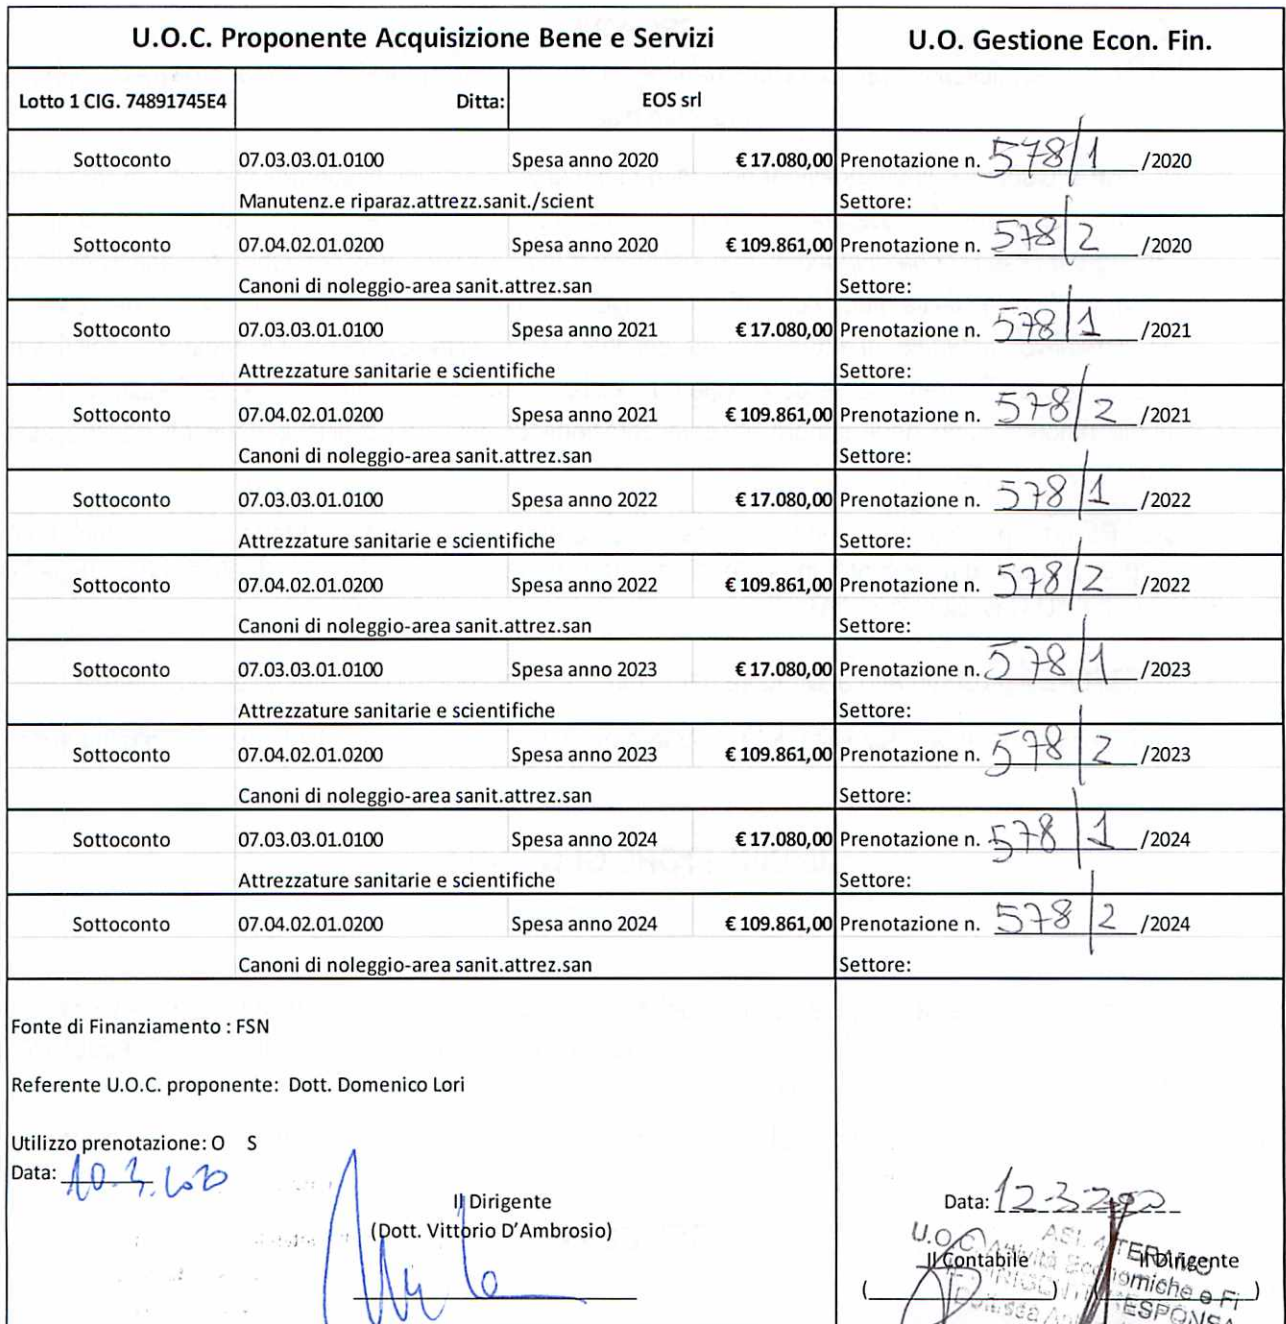 U.O.C. Proponente Acquisizione Bene e Servizi U.O. Gestione Econ. Fin.
Lotto 1 CIG. 74891745E4 Ditta: EOS srl
Sottoconto 07.03.03.01.0100 Spesa anno 2020 € 17.080,00 Prenotazione n. 578/1 /2020
Manutenz.e riparaz.attrezz.sanit./scient Settore:
Sottoconto 07.04.02.01.0200 Spesa anno 2020 € 109.861,00 Prenotazione n. 578/2 /2020
Canoni di noleggio-area sanit.attrez.san Settore:
Sottoconto 07.03.03.01.0100 Spesa anno 2021 € 17.080,00 Prenotazione n. 578/1 /2021
Attrezzature sanitarie e scientifiche Settore:
Sottoconto 07.04.02.01.0200 Spesa anno 2021 € 109.861,00 Prenotazione n. 578/2 /2021
Canoni di noleggio-area sanit.attrez.san Settore:
Sottoconto 07.03.03.01.0100 Spesa anno 2022 € 17.080,00 Prenotazione n. 578/1 /2022
Attrezzature sanitarie e scientifiche Settore:
Sottoconto 07.04.02.01.0200 Spesa anno 2022 € 109.861,00 Prenotazione n. 578/2 /2022
Canoni di noleggio-area sanit.attrez.san Settore:
Sottoconto 07.03.03.01.0100 Spesa anno 2023 € 17.080,00 Prenotazione n. 578/1 /2023
Attrezzature sanitarie e scientifiche Settore:
Sottoconto 07.04.02.01.0200 Spesa anno 2023 € 109.861,00 Prenotazione n. 578/2 /2023
Canoni di noleggio-area sanit.attrez.san Settore:
Sottoconto 07.03.03.01.0100 Spesa anno 2024 € 17.080,00 Prenotazione n. 578/1 /2024
Attrezzature sanitarie e scientifiche Settore:
Sottoconto 07.04.02.01.0200 Spesa anno 2024 € 109.861,00 Prenotazione n. 578/2 /2024
Canoni di noleggio-area sanit.attrez.san Settore:
Fonte di Finanziamento : FSN
Referente U.O.C. proponente: Dott. Domenico Lori
Utilizzo prenotazione: O S
Data: 10.3.2020
Il Dirigente Data: 12-3-2020
(Dott. Vittorio D'Ambrosio)
U.O.C. Attività Economiche e Fi
Il Contabile Il Dirigente
( ) ( )